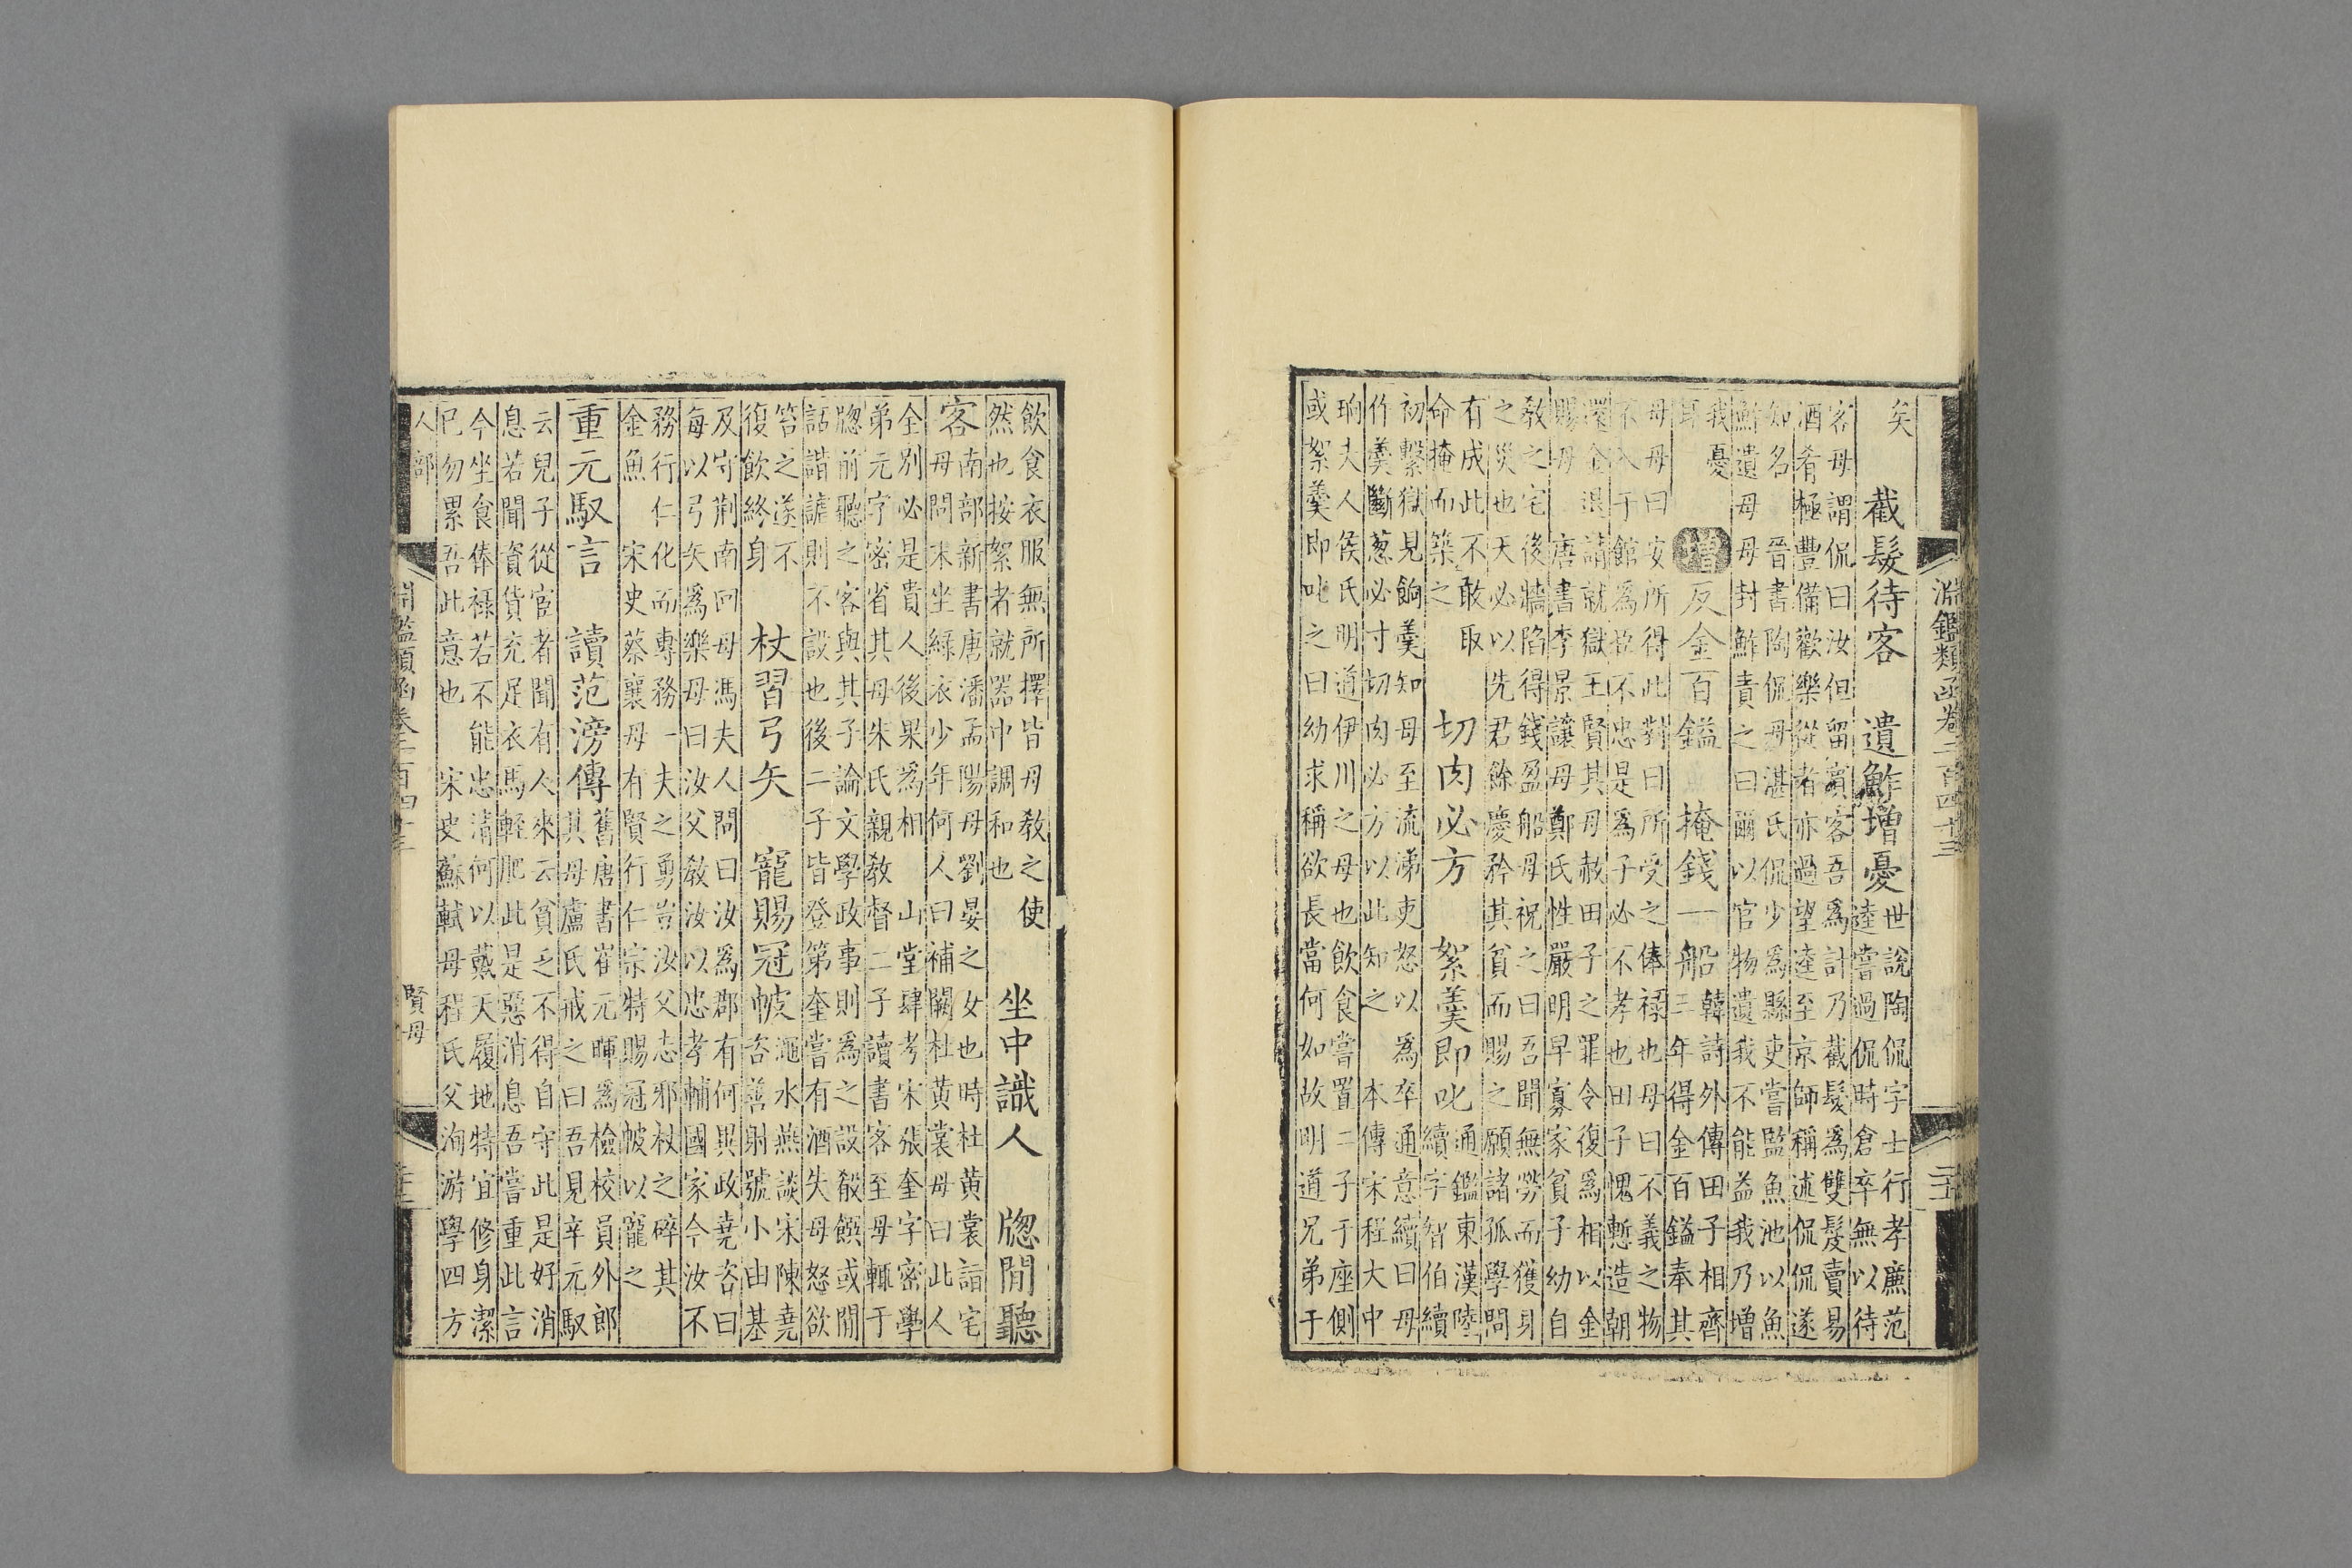 淵鑑類函卷二百四十三
矣
截髮待客　遺鮓增憂
世說陶侃字士行孝廉范
逵嘗過侃時倉卒無以待
客母謂侃曰汝但留賓客吾爲計乃截髮爲雙髲賣易
酒肴極豐備歡樂從者亦過望逵至京師稱述侃侃遂
知名　晉書陶侃母湛氏侃少爲縣吏嘗監魚池以魚
鮓遺母母封鮓責之曰爾以官物遺我不能益我乃增
我憂
耳
增　反金百鎰　掩錢一船
韓詩外傳田子相齊
三年得金百鎰奉其
母母曰安所得此對曰所受之俸祿也母曰不義之物
不入于館爲臣不忠是爲子必不孝也田子愧慙造朝
還金退請就獄王賢其母赦田子之罪令復爲相以金
賜母　唐書李景讓母鄭氏性嚴明早寡家貧子幼自
敎之宅後牆陷得錢盈船母祝之曰吾聞無勞而獲身
之災也天必以先君餘慶矜其貧而賜之願諸孤學問
有成此不敢取
命掩而築之
切肉必方　絮羹即叱
通鑑東漢陸
續字智伯續
初繫獄見餉羹知母至流涕吏怒以爲卒通意續曰母
作羹斷葱必寸切肉必方以此知之　本傳宋程大中
珦夫人侯氏明道伊川之母也飲食嘗置二子于座側
或絮羹即叱之曰幼求稱欲長當何如故明道兄弟于
飲食衣服無所擇皆母敎之使
然也按絮者就器中調和也
坐中識人　牕間聽
客
南部新書唐潘孟陽母劉晏之女也時杜黃裳詣宅
母問末坐綠衣少年何人曰補闕杜黃裳母曰此人
全別必是貴人後果爲相　山堂肆考宋張奎字密學
弟元字密省其母朱氏親敎督二子讀書客至母輒于
牕前聽之客與其子論文學政事則爲之設殽饌或閒
話諧謔則不設也後二子皆登第奎嘗有酒失母怒欲
笞之遂不
復飲終身
杖習弓矢　寵賜冠帔
澠水燕談宋陳堯
咨善射號小由基
及守荆南回母馮夫人問曰汝爲郡有何異政堯咨曰
每以弓矢爲樂母曰汝父敎汝以忠孝輔國家今汝不
務行仁化而專務一夫之勇豈汝父志邪杖之碎其
金魚　宋史蔡襄母有賢行仁宗特賜冠帔以寵之
重元馭言　讀范滂傳
舊唐書崔元暐爲檢校員外郎
其母盧氏戒之曰吾見辛元馭
云兒子從宦者聞有人來云貧乏不得自守此是好消
息若聞資貨充足衣馬輕肥此是惡消息吾嘗重此言
今坐食俸祿若不能忠清何以戴天履地特宜修身潔
已勿累吾此意也　宋史蘇軾母程氏父洵游學四方
人部
淵鑑類函卷二百四十三
賢母